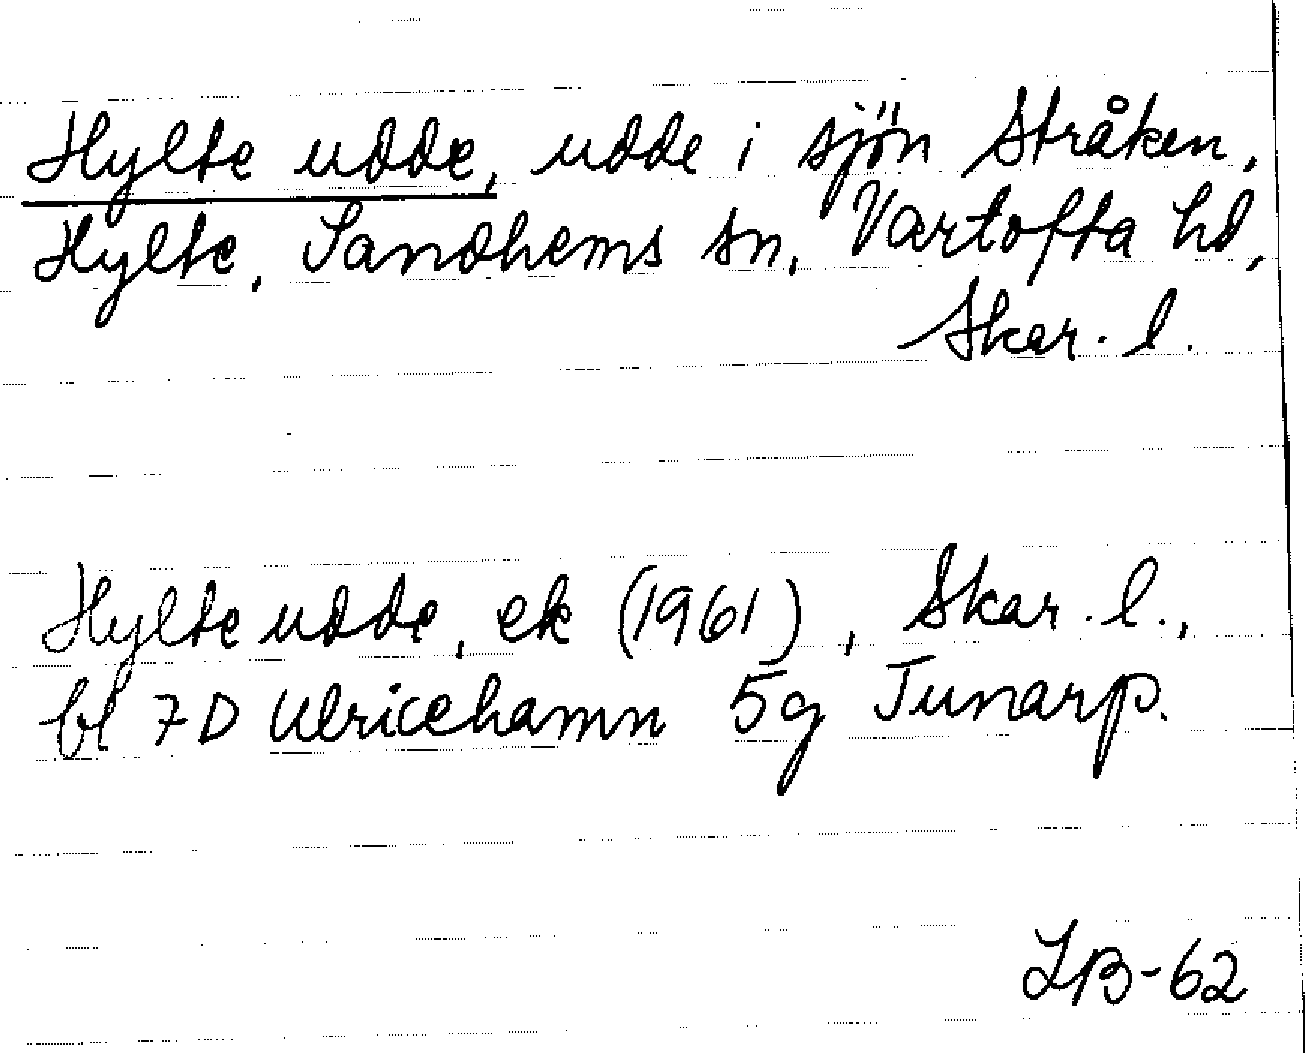 Hylte udde, udde i sjön Stråken,
Hylte, Sandhems sn, Vartofta hd,
Skar. l.
Hylte udde, ek (1961), Skar. l.,
bl 7D Ulricehamn 5g Tunarp.
LB-62